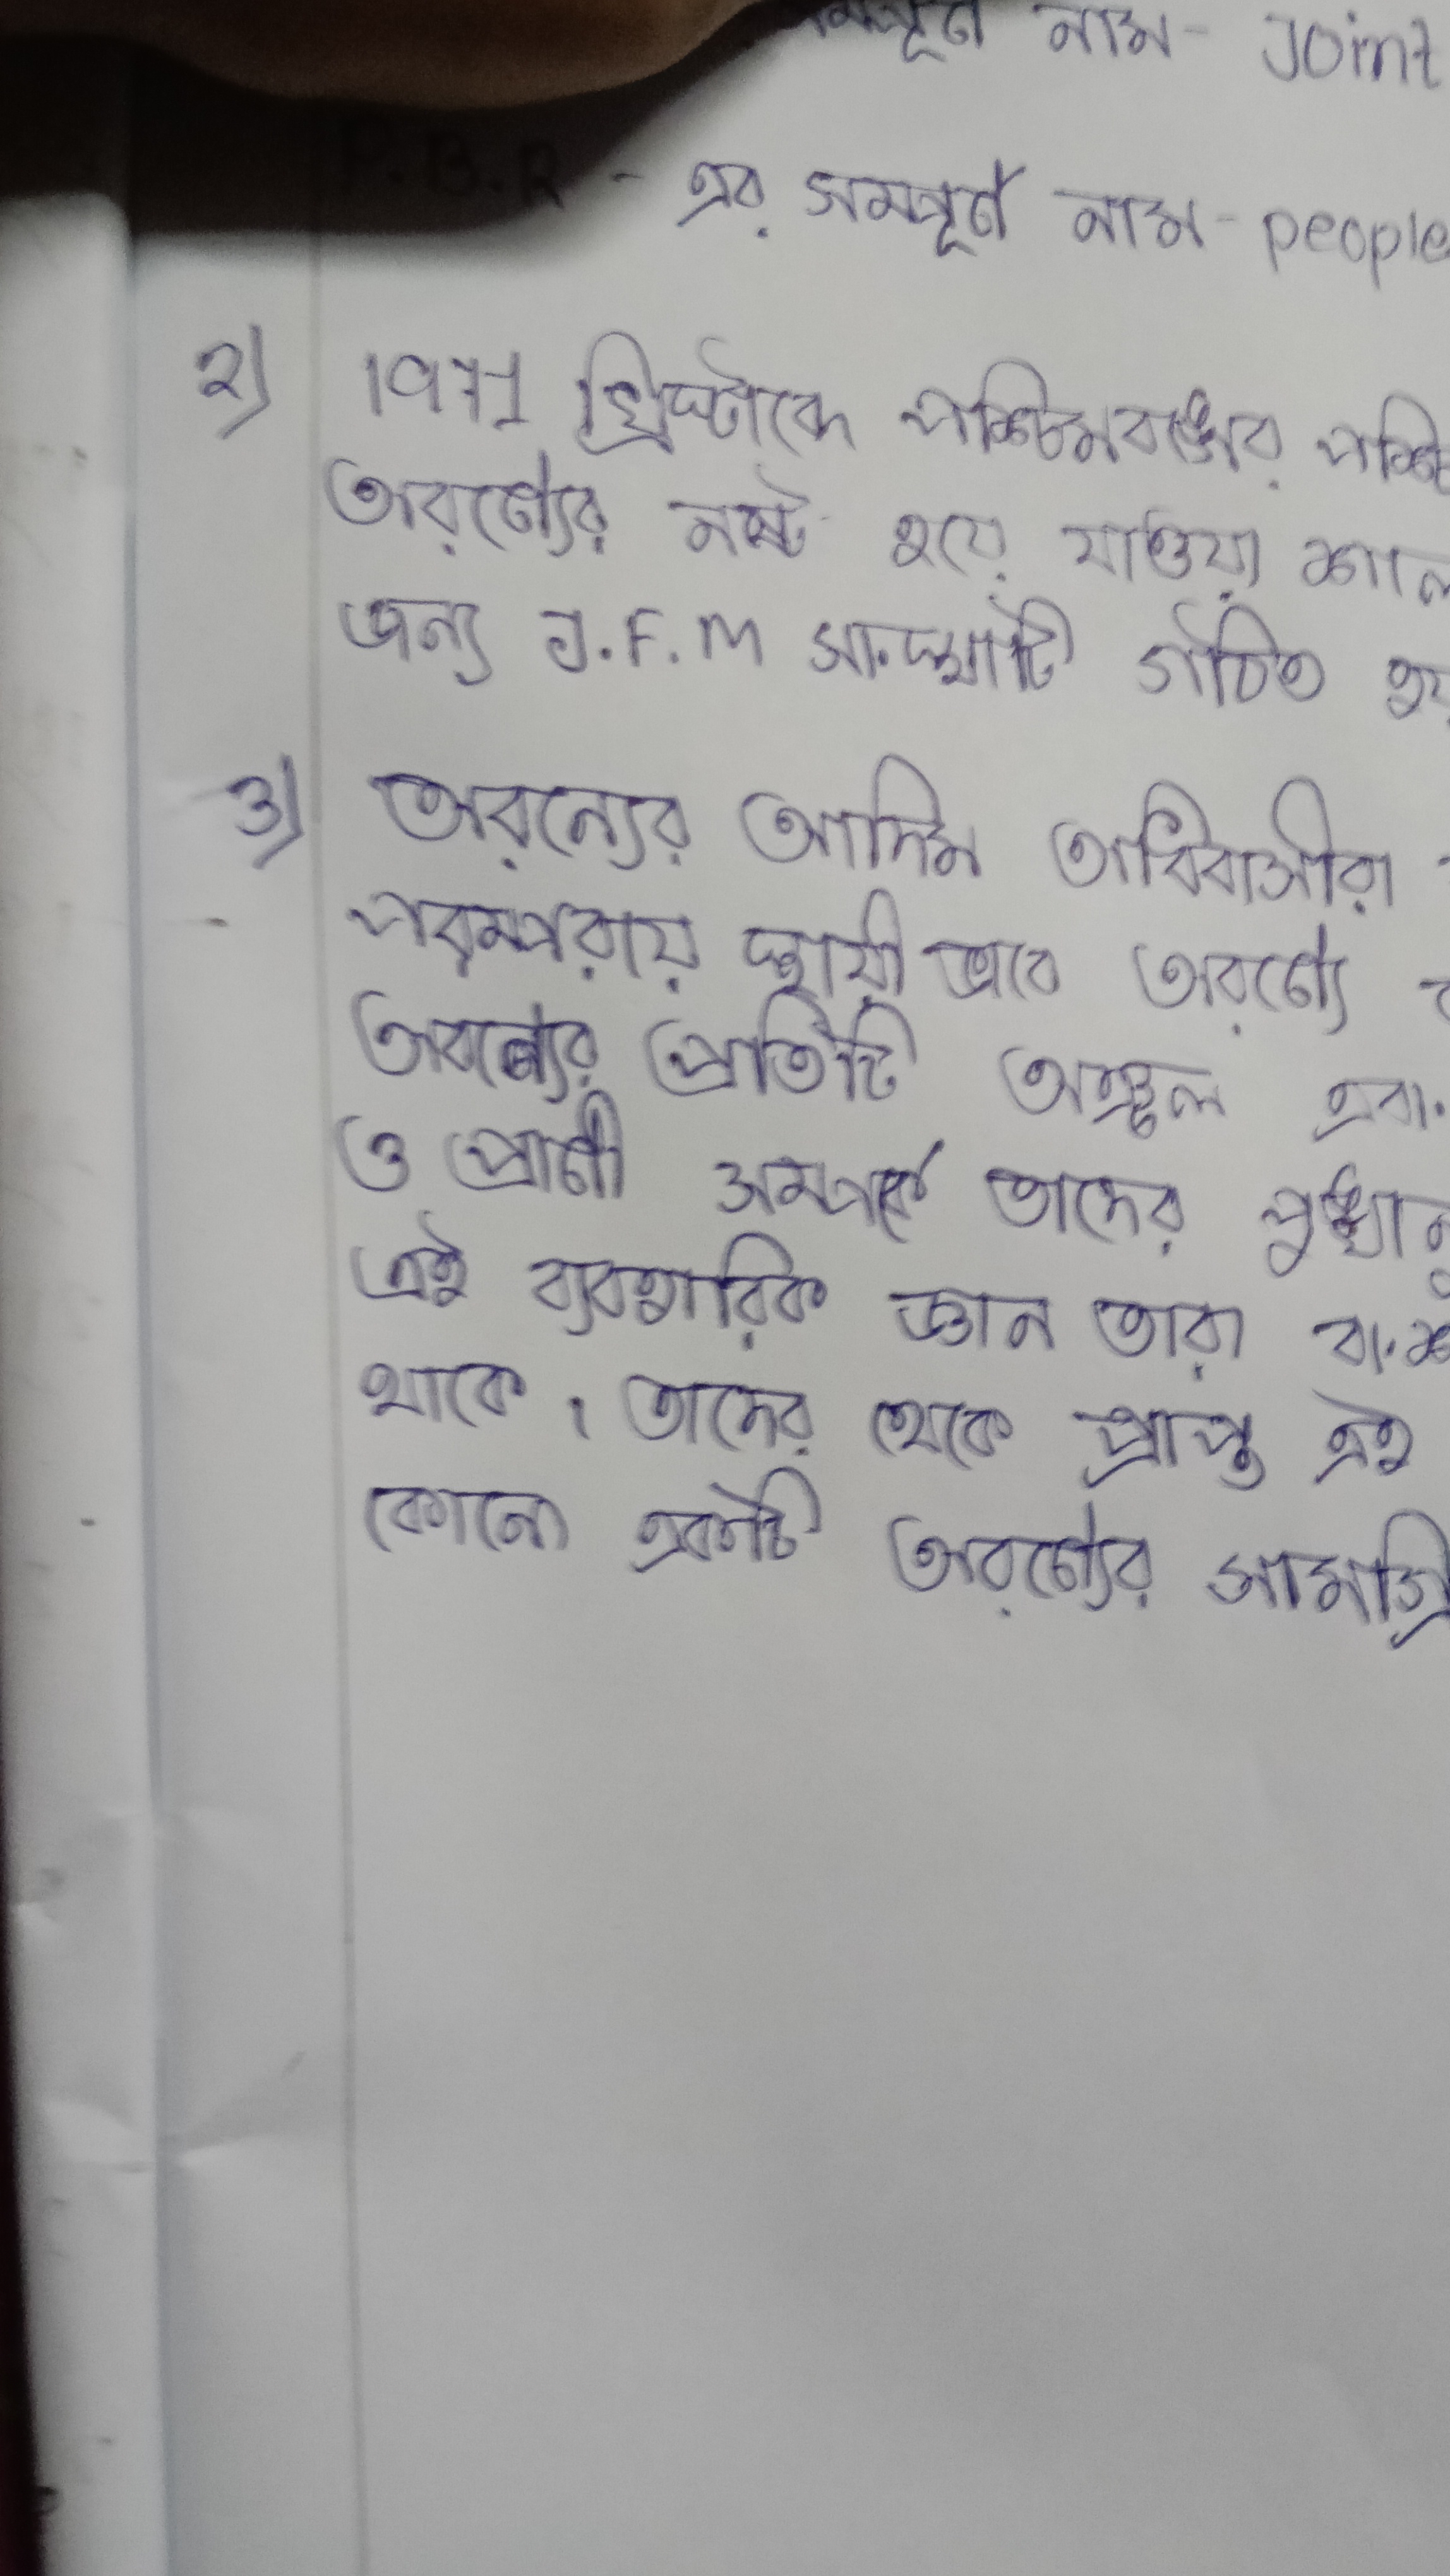 নাম - Joint
P.B.R - এর সম্পূর্ণ নাম - people
২) 1971 খ্রিস্টাব্দে পশ্চিমবঙ্গের
অরণ্যের নষ্ট হয়ে যাওয়া শাল
জন্য J.F.M সংস্থাটি গঠিত
৩) অরন্যের আদিম অধিবাসীরা
পরম্পরায় স্থায়ী ভাবে অরণ্যে
অরণ্যের প্রতিটি অঞ্চল এবং
ও প্রাণী সম্পর্কে তাদের
এই ব্যবহারিক জ্ঞান তারা
থাকে। তাদের থেকে প্রাপ্ত এই
কোনো একটি অরণ্যের